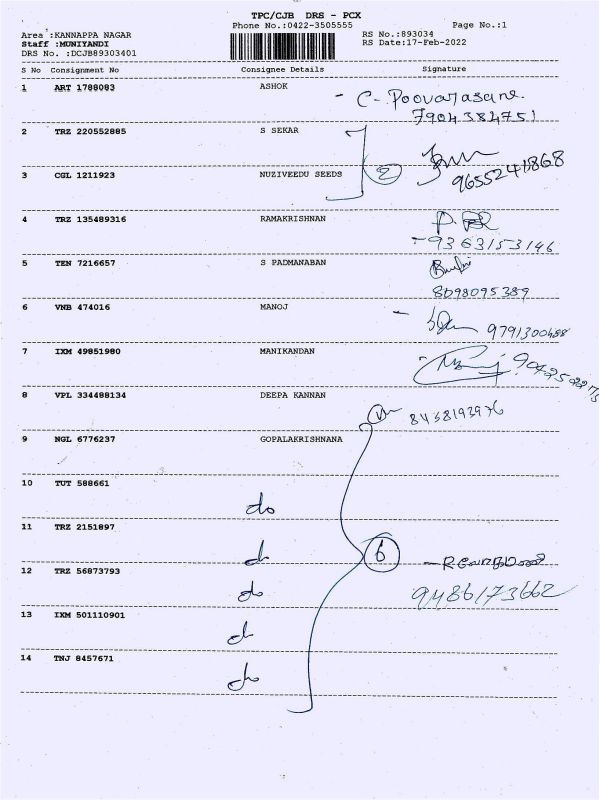 TPC/CJB DRS - PCX
Phone No.:0422-3505555 Page No.:1
Area :KANNAPPA NAGAR RS No.:893034
Staff :MUNIYANDI RS Date:17-Feb-2022
DRS No. :DCJB89303401
S No Consignment No Consignee Details Signature
1 ART 1788083 ASHOK - C. Poovarasane.
7904384751
2 TRZ 220552885 S SEKAR
2
3 CGL 1211923 NUZIVEEDU SEEDS 9655241868
4 TRZ 135489316 RAMAKRISHNAN
- 9363153146
5 TEN 7216657 S PADMANABAN
8098095389
6 VNB 474016 MANOJ
9791300488
7 IXM 49851980 MANIKANDAN
8 VPL 334488134 DEEPA KANNAN
8438193976
9 NGL 6776237 GOPALAKRISHNANA
10 TUT 588661
do
11 TRZ 2151897
do
6
12 TRZ 56873793
do
9486173662
13 IXM 501110901
do
14 TNJ 8457671
do